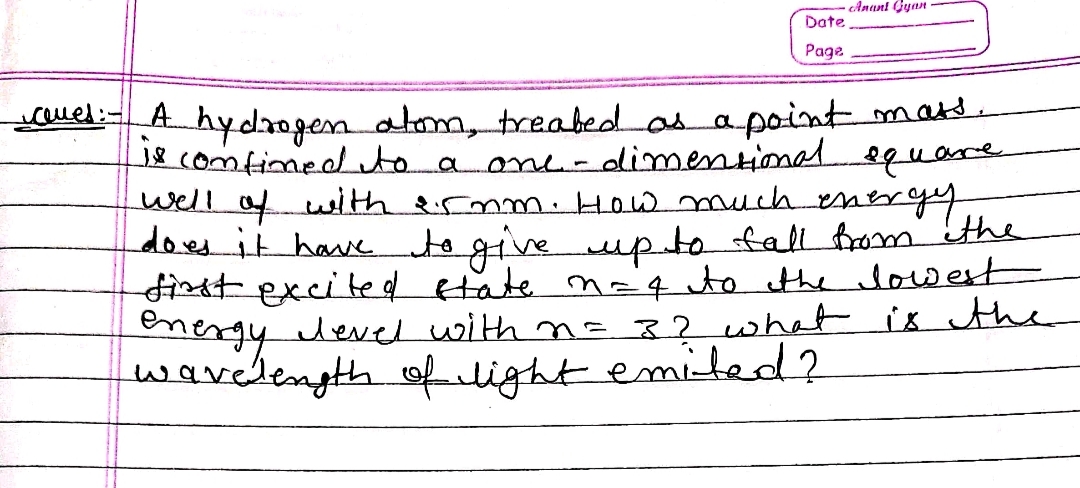 Anant Gyan
Date
Page
Ques:- A hydrogen atom, treated as a point mass.
is confimed to a one-dimensional square
well of with 2.5 nm. How much energy
does it have to give up to fall from the
first excited state n=4 to the lowest
energy level with n= 3? what is the
wavelength of light emited?